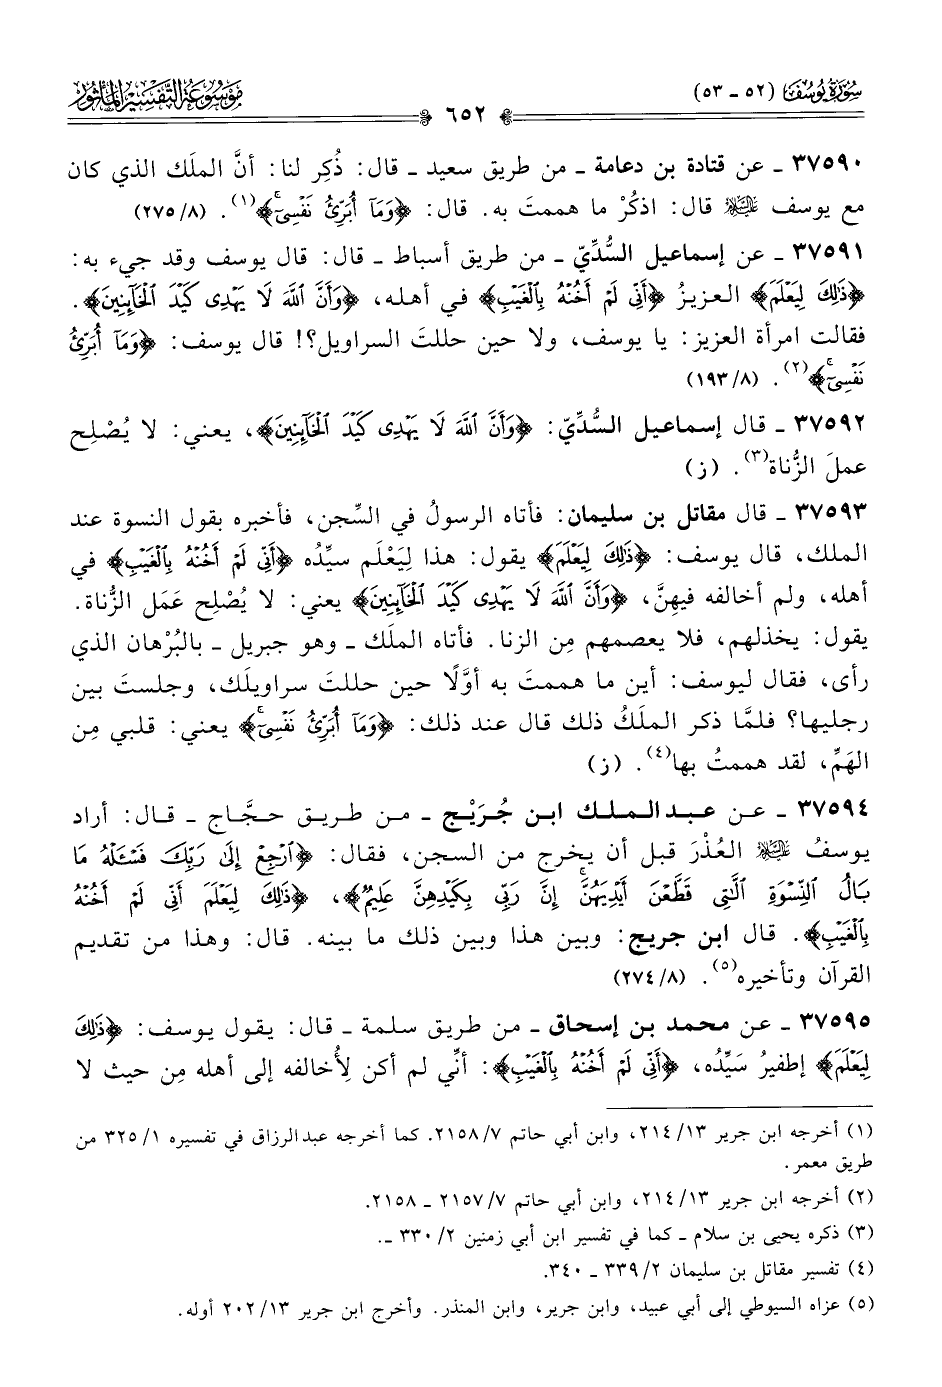 سُورَةُ يُوسُفَ (٥٢ - ٥٣)
مَوْسُوعَةُ التَّفْسِيرِ المَأْثُورِ
٦٥٢
٣٧٥٩٠ ـ عن قتادة بن دعامة ـ من طريق سعيد ـ قال: ذُكِر لنا: أنَّ الملَك الذي كان
مع يوسف عليه السلام قال: اذكُرْ ما هممتَ به. قال: ﴿وَمَآ أُبَرِّئُ نَفْسِىٓۚ﴾(١). (٢٧٥/٨)
٣٧٥٩١ ـ عن إسماعيل السُّدِّيّ ـ من طريق أسباط ـ قال: قال يوسف وقد جيء به:
﴿ذَٰلِكَ لِيَعْلَمَ﴾ العزيزُ ﴿أَنِّى لَمْ أَخُنْهُ بِٱلْغَيْبِ﴾ في أهله، ﴿وَأَنَّ ٱللَّهَ لَا يَهْدِى كَيْدَ ٱلْخَآئِنِينَ﴾.
فقالت امرأة العزيز: يا يوسف، ولا حين حللتَ السراويل؟! قال يوسف: ﴿وَمَآ أُبَرِّئُ
نَفْسِىٓۚ﴾(٢). (١٩٣/٨)
٣٧٥٩٢ ـ قال إسماعيل السُّدِّيّ: ﴿وَأَنَّ ٱللَّهَ لَا يَهْدِى كَيْدَ ٱلْخَآئِنِينَ﴾، يعني: لا يُصْلِح
عملَ الزُّناة(٣). (ز)
٣٧٥٩٣ ـ قال مقاتل بن سليمان: فأتاه الرسولُ في السِّجن، فأخبره بقول النسوة عند
الملك، قال يوسف: ﴿ذَٰلِكَ لِيَعْلَمَ﴾ يقول: هذا لِيَعْلَم سيِّدُه ﴿أَنِّى لَمْ أَخُنْهُ بِٱلْغَيْبِ﴾ في
أهله، ولم أخالفه فيهنَّ، ﴿وَأَنَّ ٱللَّهَ لَا يَهْدِى كَيْدَ ٱلْخَآئِنِينَ﴾ يعني: لا يُصْلِح عَمَل الزُّناة.
يقول: يخذلهم، فلا يعصمهم مِن الزنا. فأتاه الملَك ـ وهو جبريل ـ بالبُرْهان الذي
رأى، فقال ليوسف: أين ما هممتَ به أوَّلًا حين حللتَ سراويلك، وجلستَ بين
رجليها؟ فلمَّا ذكر الملَكُ ذلك قال عند ذلك: ﴿وَمَآ أُبَرِّئُ نَفْسِىٓۚ﴾ يعني: قلبي مِن
الهَمِّ، لقد هممتُ بها(٤). (ز)
٣٧٥٩٤ ـ عن عبدالملك ابن جُرَيْج ـ من طريق حجَّاج ـ قال: أراد
يوسفُ عليه السلام العُذْرَ قبل أن يخرج من السجن، فقال: ﴿ٱرْجِعْ إِلَىٰ رَبِّكَ فَسْـَٔلْهُ مَا
بَالُ ٱلنِّسْوَةِ ٱلَّٰتِى قَطَّعْنَ أَيْدِيَهُنَّۚ إِنَّ رَبِّى بِكَيْدِهِنَّ عَلِيمٌ﴾، ﴿ذَٰلِكَ لِيَعْلَمَ أَنِّى لَمْ أَخُنْهُ
بِٱلْغَيْبِ﴾. قال ابن جريج: وبين هذا وبين ذلك ما بينه. قال: وهذا من تقديم
القرآن وتأخيره(٥). (٢٧٤/٨)
٣٧٥٩٥ ـ عن محمد بن إسحاق ـ من طريق سلمة ـ قال: يقول يوسف: ﴿ذَٰلِكَ
لِيَعْلَمَ﴾ إطفيرُ سَيِّدُه، ﴿أَنِّى لَمْ أَخُنْهُ بِٱلْغَيْبِ﴾: أنِّي لم أكن لِأُخالفه إلى أهله مِن حيث لا
(١) أخرجه ابن جرير ٢١٤/١٣، وابن أبي حاتم ٢١٥٨/٧. كما أخرجه عبدالرزاق في تفسيره ٣٢٥/١ من
طريق معمر.
(٢) أخرجه ابن جرير ٢١٤/١٣، وابن أبي حاتم ٢١٥٧/٧ ـ ٢١٥٨.
(٣) ذكره يحيى بن سلام ـ كما في تفسير ابن أبي زمنين ٣٣٠/٢ ـ.
(٤) تفسير مقاتل بن سليمان ٣٣٩/٢ ـ ٣٤٠.
(٥) عزاه السيوطي إلى أبي عبيد، وابن جرير، وابن المنذر. وأخرج ابن جرير ٢٠٢/١٣ أوله.